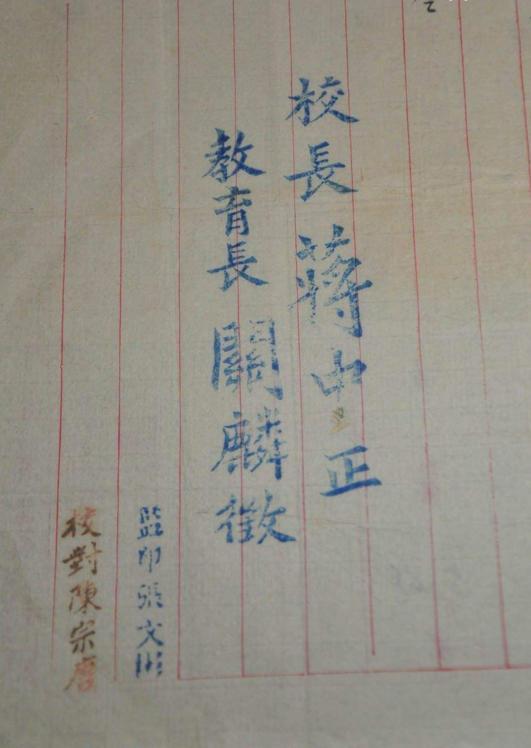 校長蔣中正
教育長關麟徵
監印張文彬
校對陳宗唐